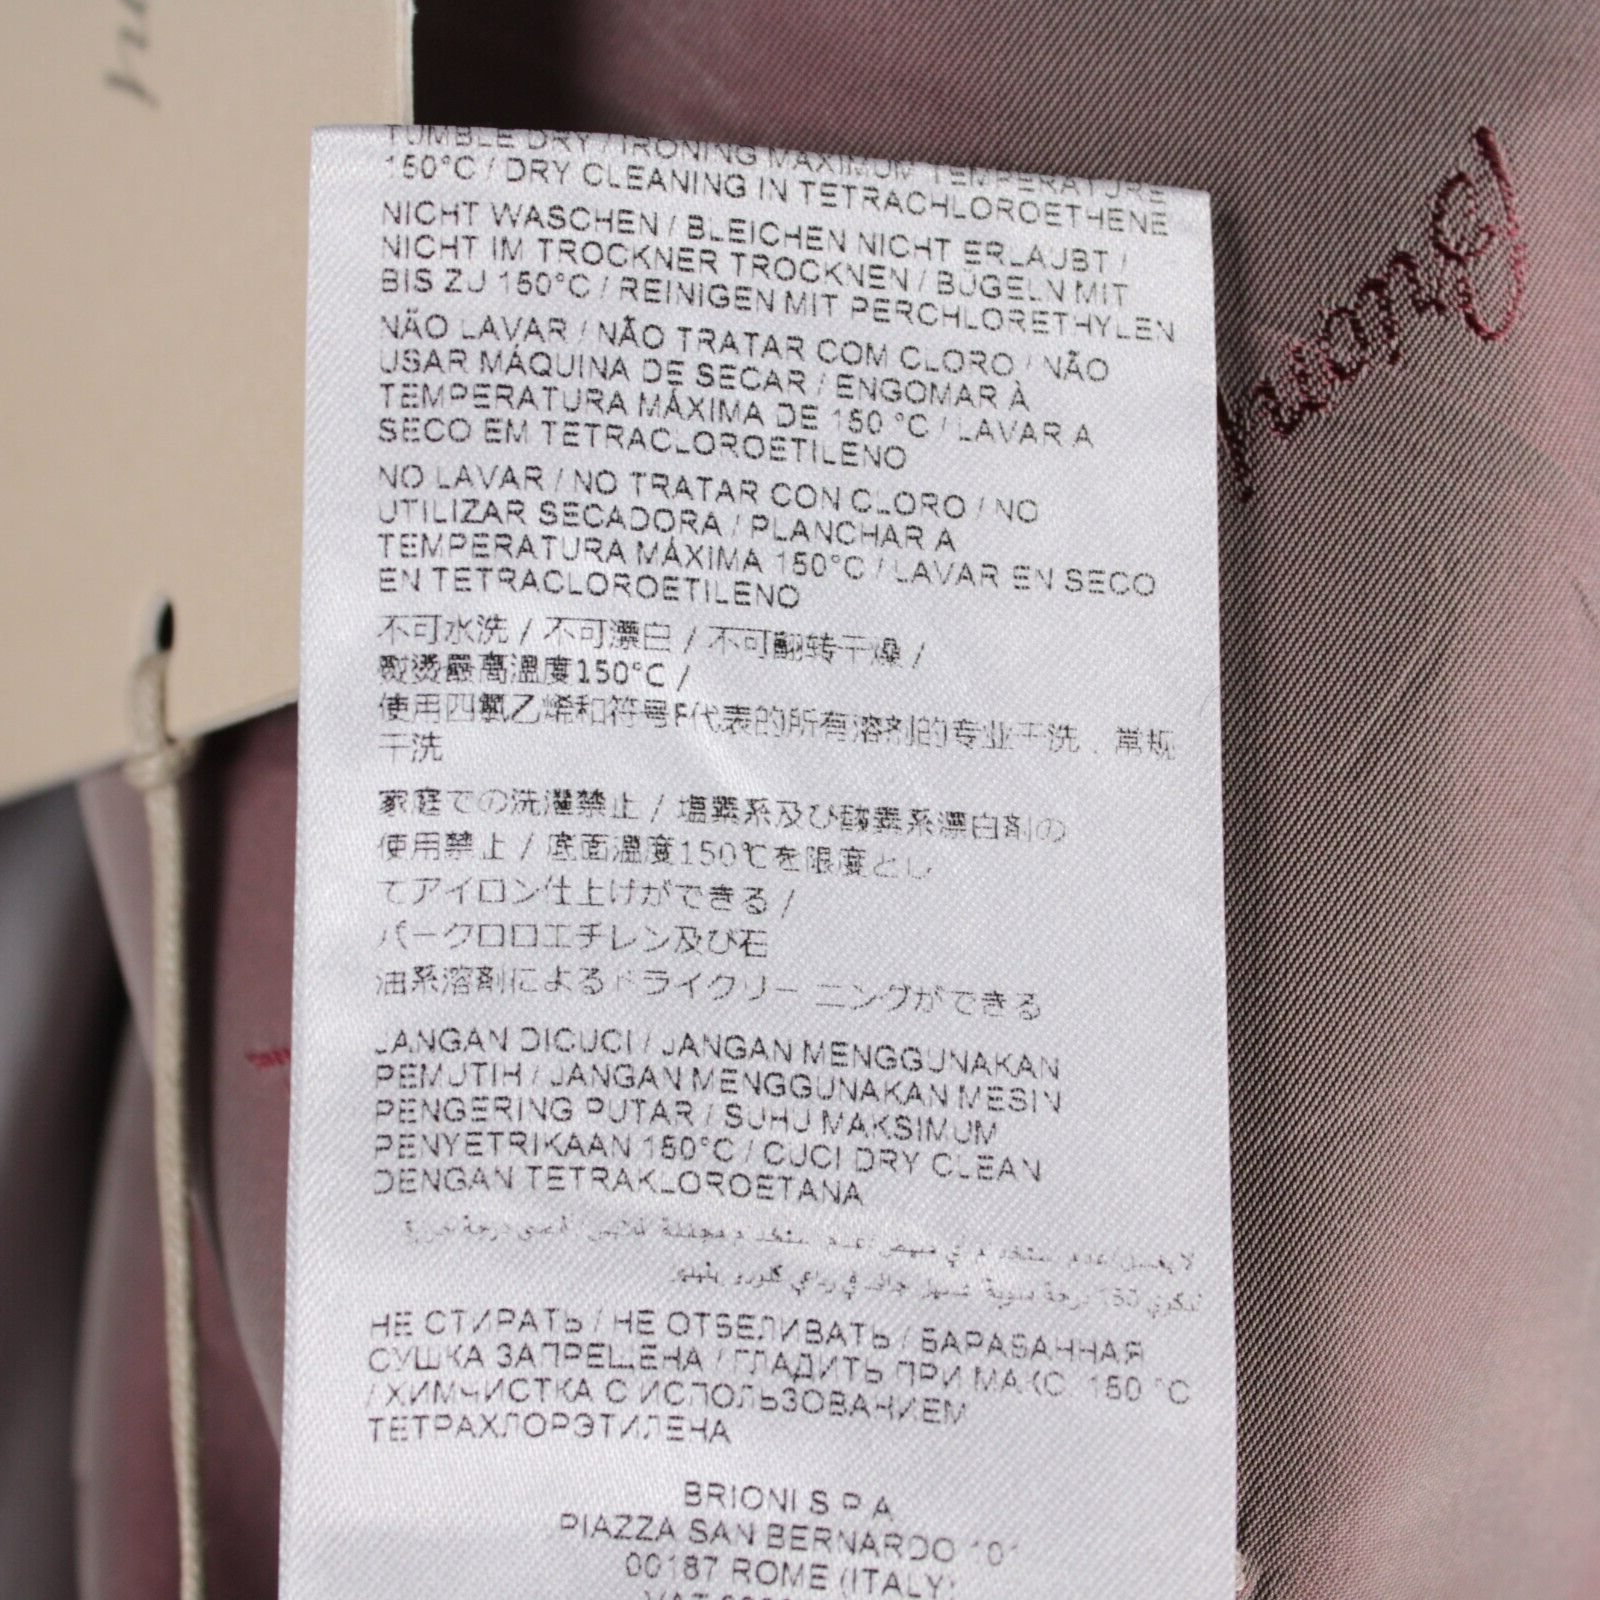 TUMBLE DRY / IRONING MAXIMUM TEMPERATURE
150°C / DRY CLEANING IN TETRACHLOROETHENE
NICHT WASCHEN / BLEICHEN NICHT ERLAUBT /
NICHT IM TROCKNER TROCKNEN / BÜGELN MIT
BIS ZU 150°C / REINIGEN MIT PERCHLORETHYLEN
NÃO LAVAR / NÃO TRATAR COM CLORO / NÃO
USAR MÁQUINA DE SECAR / ENGOMAR À
TEMPERATURA MÁXIMA DE 150 °C / LAVAR A
SECO EM TETRACLOROETILENO
NO LAVAR / NO TRATAR CON CLORO / NO
UTILIZAR SECADORA / PLANCHAR A
TEMPERATURA MÁXIMA 150°C / LAVAR EN SECO
EN TETRACLOROETILENO
不可水洗 / 不可漂白 / 不可翻转干燥 /
熨烫最高温度150°C /
使用四氯乙烯和符号F代表的所有溶剂的专业干洗．常规
干洗
家庭での洗濯禁止 / 塩素系及び酸素系漂白剤の
使用禁止 / 底面温度150℃を限度とし
てアイロン仕上げができる /
パークロロエチレン及び石
油系溶剤によるドライクリー ニングができる
JANGAN DICUCI / JANGAN MENGGUNAKAN
PEMUTIH / JANGAN MENGGUNAKAN MESIN
PENGERING PUTAR / SUHU MAKSIMUM
PENYETRIKAAN 150°C / CUCI DRY CLEAN
DENGAN TETRAKLOROETANA
НЕ СТИРАТЬ / НЕ ОТБЕЛИВАТЬ / БАРАБАННАЯ
СУШКА ЗАПРЕЩЕНА / ГЛАДИТЬ ПРИ МАКС. 150 °C
/ ХИМЧИСТКА С ИСПОЛЬЗОВАНИЕМ
ТЕТРАХЛОРЭТИЛЕНА
BRIONI S.P.A.
PIAZZA SAN BERNARDO 101
00187 ROME (ITALY)
Brioni